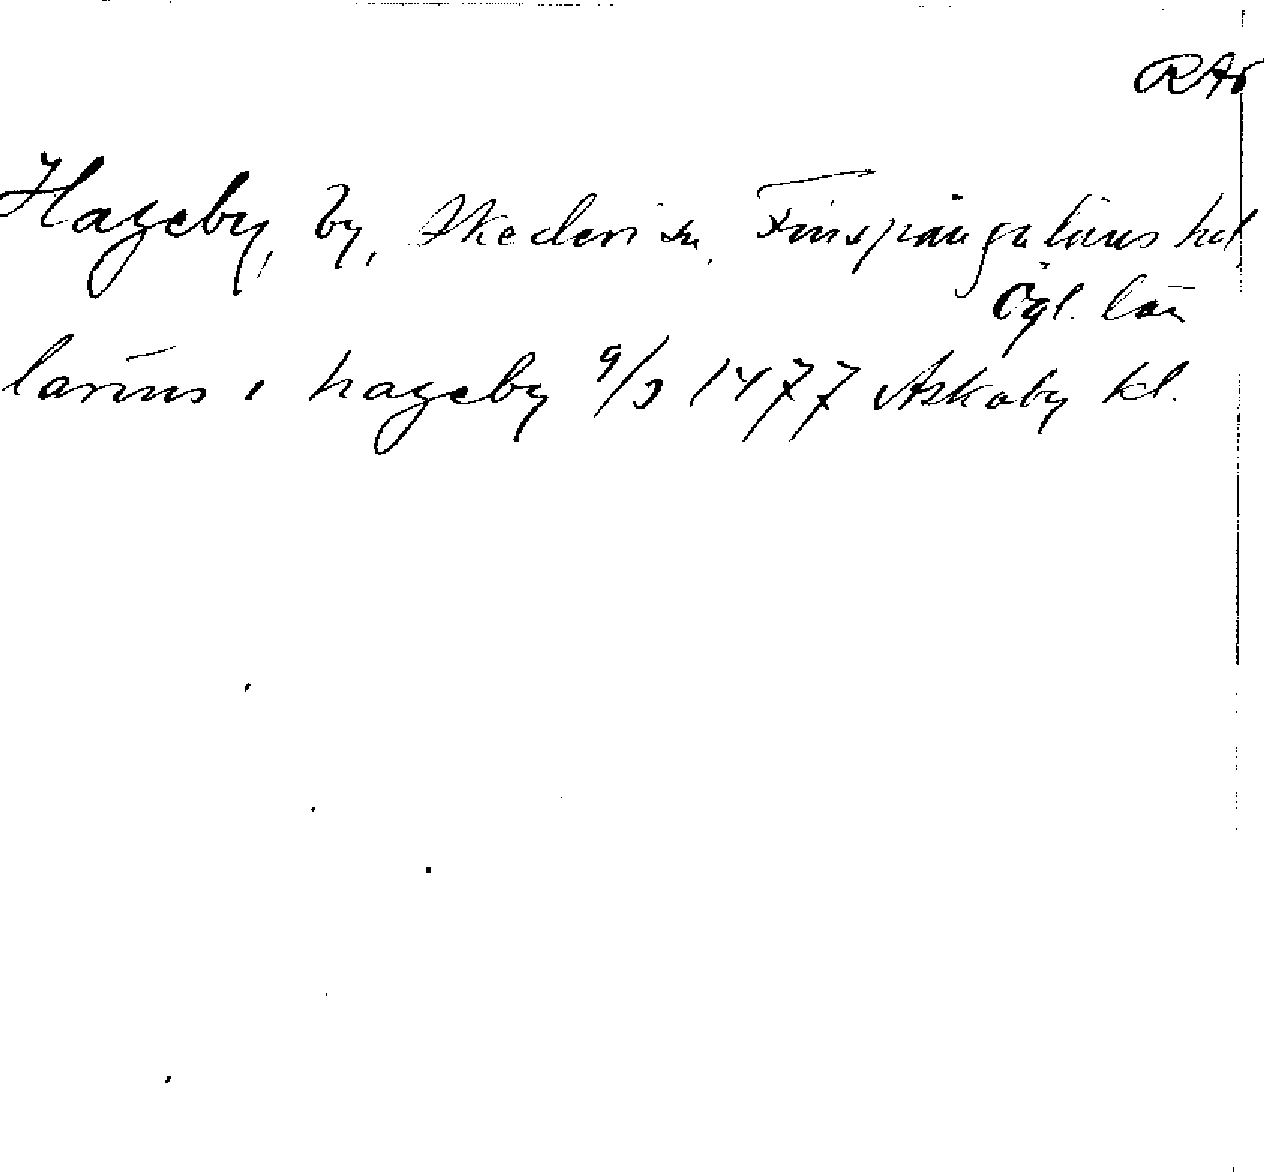 RAö
Hageby, by, Skedevi sn, Finspångaläns hd
Ögl. län
larins i hageby 9/3 1477 Askaby kl.